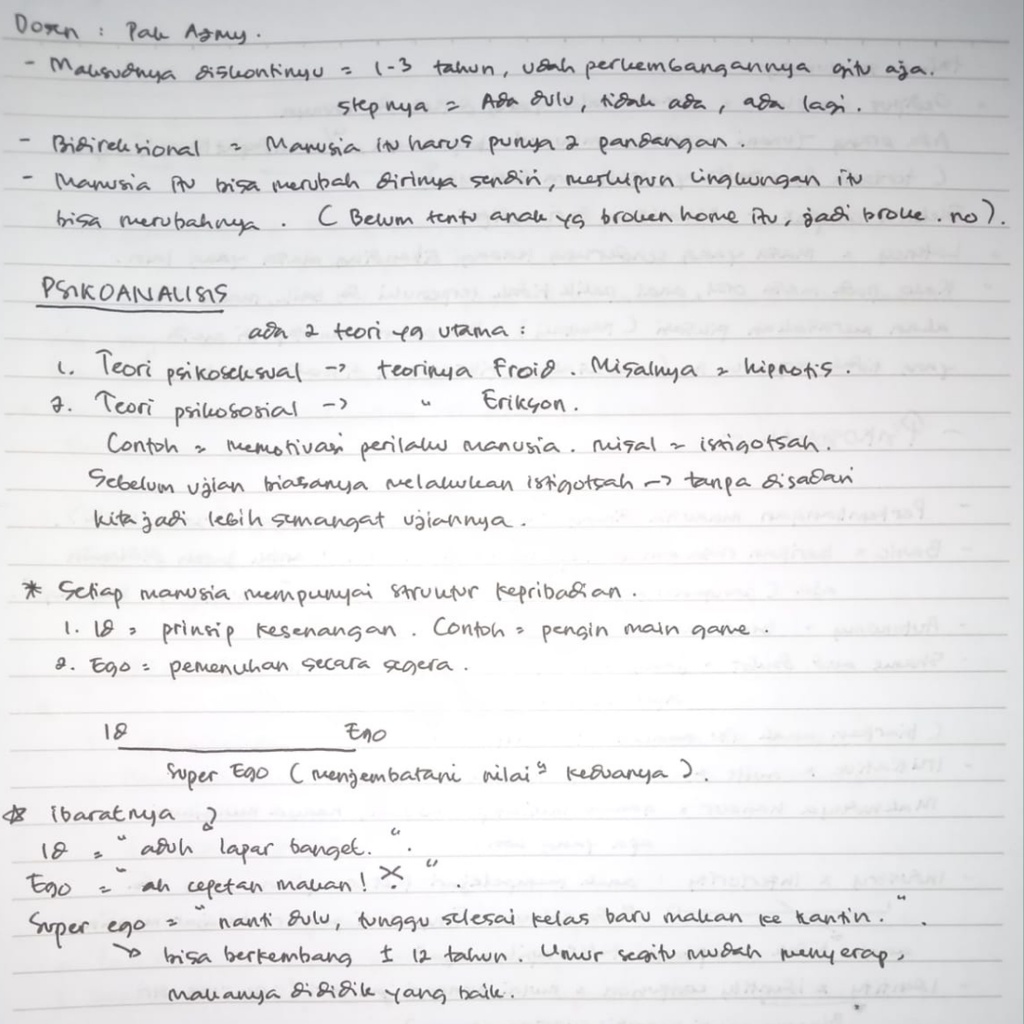 Dosen : Pak Azmy.
- Maksudnya diskontinyu = 1-3 tahun, udah perkembangannya gitu aja.
stepnya = Ada dulu, tidak ada, ada lagi.
- Bidireksional = Manusia itu harus punya 2 pandangan.
- Manusia itu bisa merubah dirinya sendiri, meskipun lingkungan itu
bisa merubahnya. (Belum tentu anak yg broken home itu, jadi broke. no).
PSIKOANALISIS
ada 2 teori yg utama :
1. Teori psikoseksual -> teorinya Froid. Misalnya = hipnotis.
2. Teori psikososial -> " Erikson.
Contoh = memotivasi perilaku manusia. misal = istigotsah.
Sebelum ujian biasanya melakukan istigotsah -> tanpa disadari
kita jadi lebih semangat ujiannya.
* Setiap manusia mempunyai struktur kepribadian.
1. Id = prinsip kesenangan. Contoh = pengin main game.
2. Ego = pemenuhan secara segera.
Id Ego
Super Ego (menjembatani nilai" keduanya).
☆ ibaratnya ?
Id = "aduh lapar banget.".
Ego = "ah cepetan makan! X".
Super ego = "nanti dulu, tunggu selesai kelas baru makan ke kantin.".
-> bisa berkembang ± 12 tahun. Umur segitu mudah menyerap,
makanya dididik yang baik.